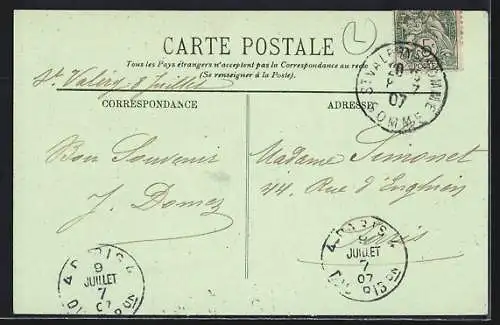 CARTE POSTALE
Tous les Pays étrangers n'acceptent pas la Correspondance au recto
(Se renseigner à la Poste).
St Valery 8 Juillet
CORRESPONDANCE
ADRESSE
Bon Souvenir
J. Domez
Madame Simonet
44 Rue d'Enghien
Paris
ST VALERY-S-SOMME
8 7
07
SOMME
PARIS
9
JUILLET
7
07
PARIS
9
JUILLET
7
07
DISTRIBUTION